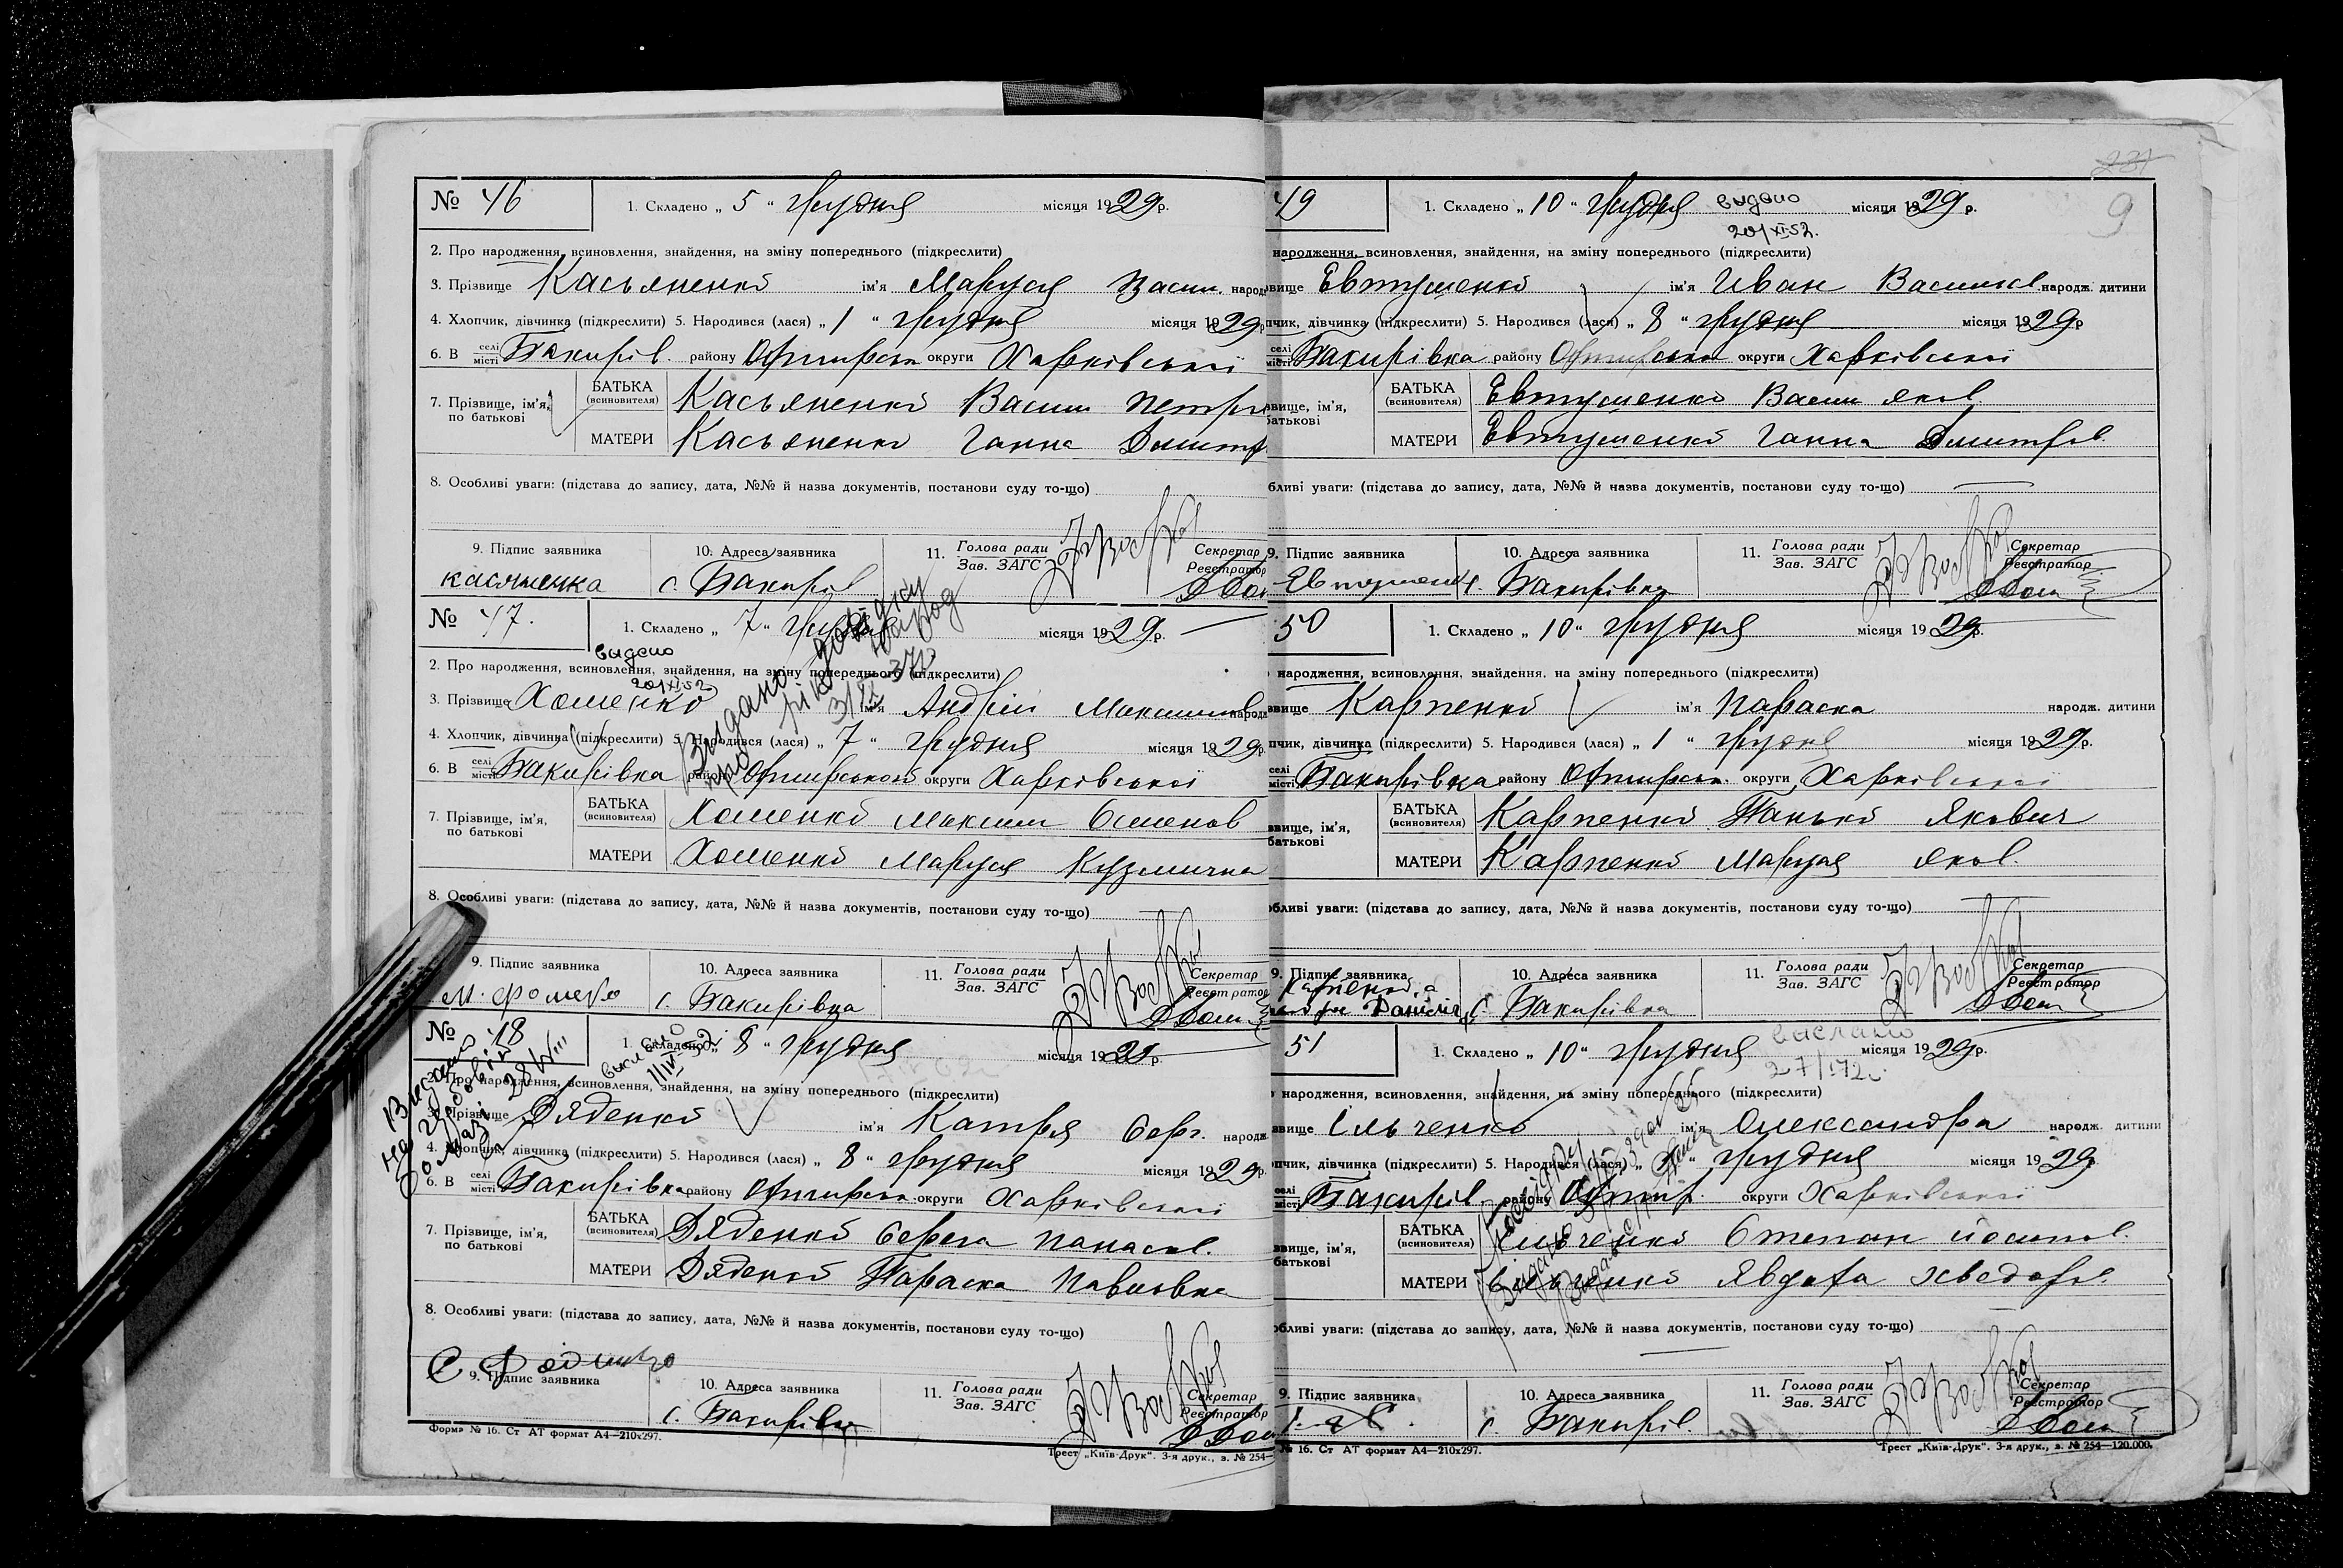 № 46
1. Складено „ 5 “ грудня місяця 1929 р.
2. Про народження, всиновлення, знайдення, на зміну попереднього (підкреслити)
3. Прізвище Касьяненко ім'я Маруся Васил. народ
4. Хлопчик, дівчинка (підкреслити) 5. Народився (лася) „ 1 “ грудня місяця 1929 р
6. В селі місті Бакирів. району Охтирськ округи Харківської
7. Прізвище, ім'я, по батькові
БАТЬКА (всиновителя) Касьяненко Васил Петро
МАТЕРИ Касьяненко Ганна Дмитр
8. Особливі уваги: (підстава до запису, дата, №№ й назва документів, постанови суду то-що)
9. Підпис заявника
10. Адреса заявника
11. Голова ради Зав. ЗАГС
Секретар Реєстратор
касяненка с. Бакирів
№ 47.
1. Складено „ 7 “ місяця 1929 р.
видано
2. Про народження, всиновлення, знайдення, на зміну попереднього (підкреслити)
20/XI 52
3. Прізвище Хоменко ім'я Андрій Максимов народ
4. Хлопчик, дівчинка (підкреслити) 5. Народився (лася) „ 7 “ грудня місяця 1929 р
6. В селі місті Бакирівка району Охтирського округи Харківської
7. Прізвище, ім'я, по батькові
БАТЬКА (всиновителя) Хоменко Максим Семенов
МАТЕРИ Хоменко Маруся Кузмична
8. Особливі уваги: (підстава до запису, дата, №№ й назва документів, постанови суду то-що)
9. Підпис заявника
10. Адреса заявника
11. Голова ради Зав. ЗАГС
Секретар Реєстратор
с. Бакирівка
№ 48
1. Складено „ 8 “ грудня місяця 1929 р.
2. Про народження, всиновлення, знайдення, на зміну попереднього (підкреслити)
3. Прізвище Дяденко ім'я Катря Серг. народж
4. Хлопчик, дівчинка (підкреслити) 5. Народився (лася) „ 8 “ грудня місяця 1929 р.
6. В селі місті Бакирівка району Охтирськ округи Харківської
7. Прізвище, ім'я, по батькові
БАТЬКА (всиновителя) Дяденко Серега Панасов.
МАТЕРИ Дяденко Параска Павловна
8. Особливі уваги: (підстава до запису, дата, №№ й назва документів, постанови суду то-що)
9. Підпис заявника
10. Адреса заявника
11. Голова ради Зав. ЗАГС
Секретар Реєстратор
с. Бакирівка
Форма № 16. Ст АТ формат А4—210х297.
Трест „Київ-Друк“. 3-я друк., з. № 254—
231
9
49
1. Складено „ 10 “ грудня видано місяця 1929 р.
20/XI 52.
народження, всиновлення, знайдення, на зміну попереднього (підкреслити)
вище Евтушенко ім'я Иван Васильов народж. дитини
пчик, дівчинка (підкреслити) 5. Народився (лася) „ 8 “ грудня місяця 1929 р
селі місті Бакирівка району Охтирська округи Харківської
вище, ім'я, батькові
БАТЬКА (всиновителя) Евтушенко Васил Яков.
МАТЕРИ Евтушенко Ганна Дмитров.
бливі уваги: (підстава до запису, дата, №№ й назва документів, постанови суду то-що)
9. Підпис заявника
10. Адреса заявника
11. Голова ради Зав. ЗАГС
Секретар Реєстратор
Евтушенк с. Бакирівка
50
1. Складено „ 10 “ грудня місяця 1929 р.
народження, всиновлення, знайдення, на зміну попереднього (підкреслити)
вище Карпенко ім'я Параска народж. дитини
пчик, дівчинка (підкреслити) 5. Народився (лася) „ 1 “ грудня місяця 1929 р.
селі місті Бакирівка району Охтирськ. округи Харківської
вище, ім'я, батькові
БАТЬКА (всиновителя) Карпенко Панько Якович
МАТЕРИ Карпенко Маруся Яков.
бливі уваги: (підстава до запису, дата, №№ й назва документів, постанови суду то-що)
9. Підпис заявника
10. Адреса заявника
11. Голова ради Зав. ЗАГС
Секретар Реєстратор
с. Бакирівка
51
1. Складено „ 10 “ грудня місяця 1929 р.
народження, всиновлення, знайдення, на зміну попереднього (підкреслити)
вище Ільченко ім'я Олександра народж. дитини
пчик, дівчинка (підкреслити) 5. Народився (лася) грудня місяця 1929
селі місті Бакирів району Охтир. округи Харківської
вище, ім'я, батькові
БАТЬКА (всиновителя) Ільченко Степан Йосипов.
МАТЕРИ Ільченко Явдоха Хведоров.
бливі уваги: (підстава до запису, дата, №№ й назва документів, постанови суду то-що)
9. Підпис заявника
10. Адреса заявника
11. Голова ради Зав. ЗАГС
Секретар Реєстратор
с. Бакирів.
№ 16. Ст АТ формат А4—210х297.
Трест „Київ-Друк“. 3-я друк., з. № 254—120.000.